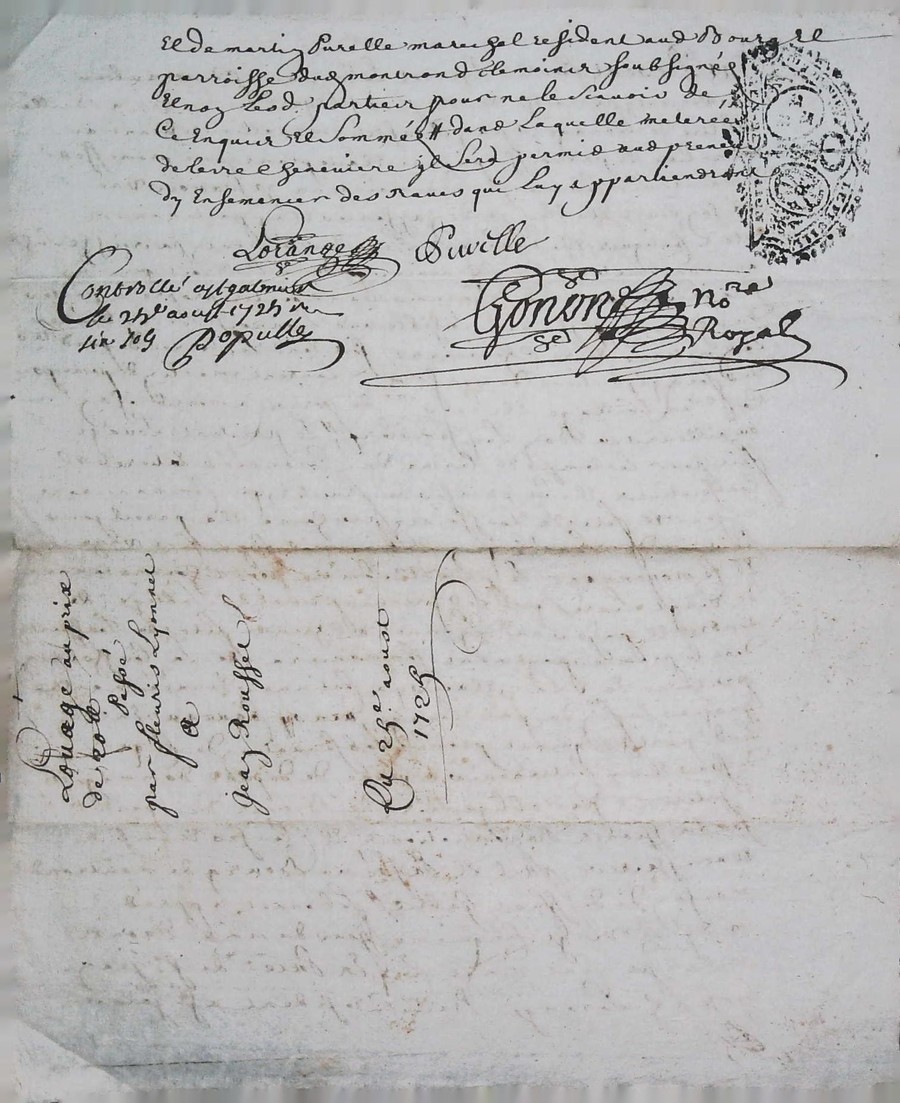 Et de martin Purelle marechal resident aud Bourg Et
parroisse dud montrond temoins soubsignés
Et non lesd parties pour ne le scavoir de
Ce Enquis Et sommés # dans laquelle meterée
de terre cheneviere il sera permis aud preneur
dy Ensemencer des raves qui luy appartiendront
Lorange Purelle
Controllé a st galmier
le aoust 1725
six sols Populle
Gonon nore
Royal
Louage au prix
de 20ll
Passé
par fleuris Lyonnet
a
jean Roussel
Du 25e aoust
1725